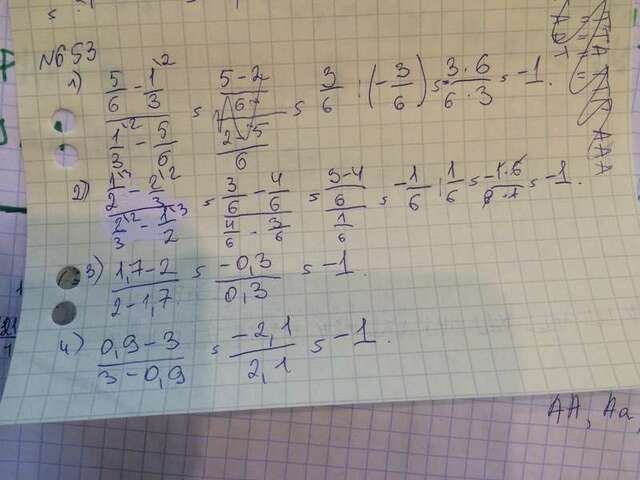 №653
1) (5/6 - 1/3 \2) / (1/3 \2 - 5/6) = ((5-2)/6) / ((2-5)/6) = 3/6 : (-3/6) = -(3·6)/(6·3) = -1.
2) (1/2 \3 - 2/3 \2) / (2/3 \2 - 1/2 \3) = (3/6 - 4/6) / (4/6 - 3/6) = ((3-4)/6) / (1/6) = -1/6 : 1/6 = (-1·6)/(6·1) = -1.
3) (1,7-2)/(2-1,7) = (-0,3)/(0,3) = -1.
4) (0,9-3)/(3-0,9) = (-2,1)/(2,1) = -1.
AA, Aa,